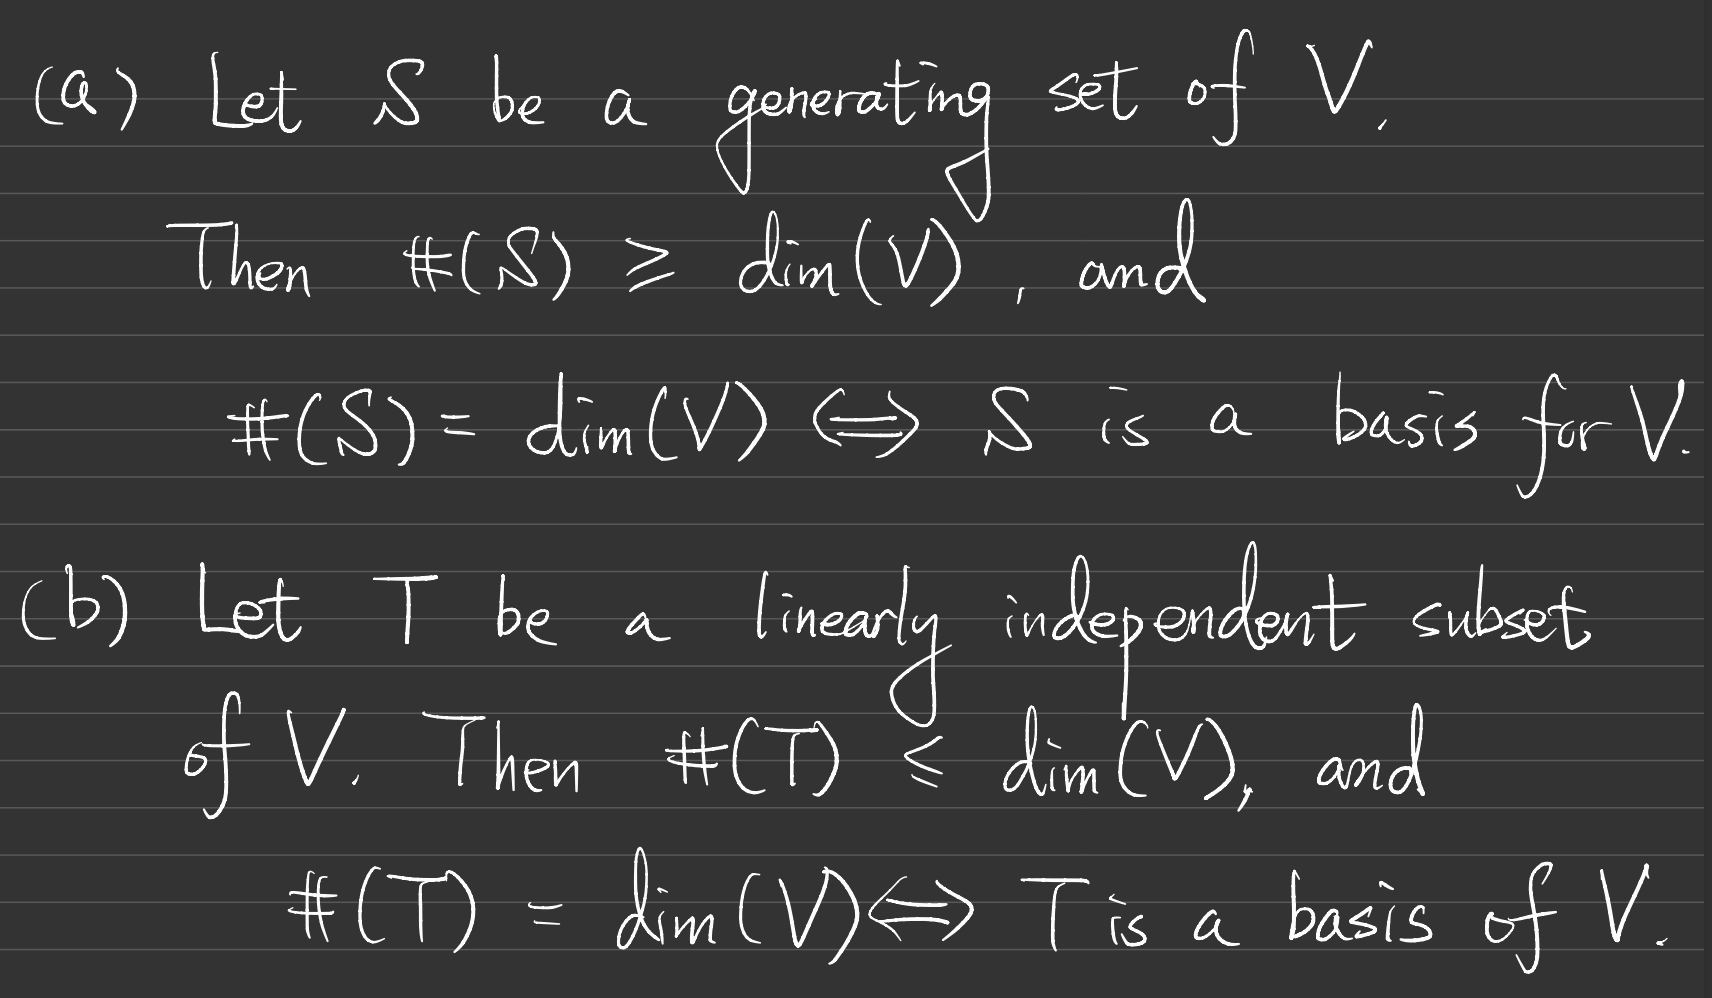 (a) Let S be a generating set of V.
Then #(S) ≥ dim(V), and
#(S) = dim(V) ⟺ S is a basis for V.
(b) Let T be a linearly independent subset
of V. Then #(T) ≤ dim(V), and
#(T) = dim(V) ⟺ T is a basis of V.